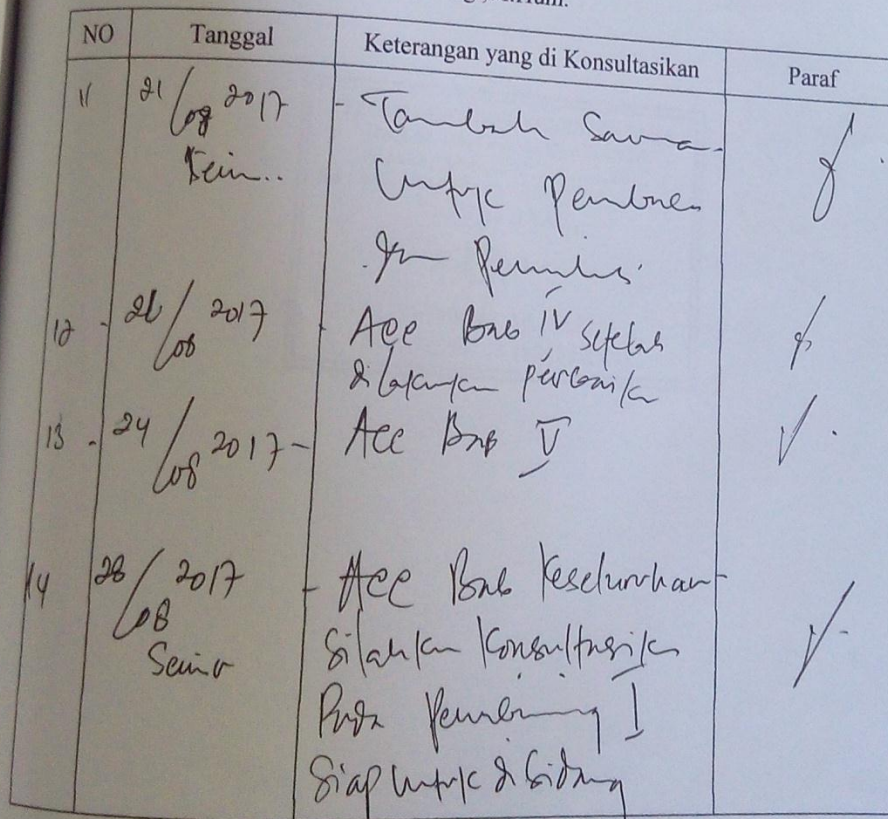 NO Tanggal Keterangan yang di Konsultasikan Paraf
11 21/08 2017 - Tambah
Senin..
Untuk
dan Penulis
12 - 2017 - Acc Bab IV setelah
dilakukan perbaika
13 - 24/08 2017 - Acc Bab V
14 28/08 2017 - Acc Bab Keseluruhan
Senin Silahkan Konsultasika
Pada Pembimbing I
Siap untuk di Sidang